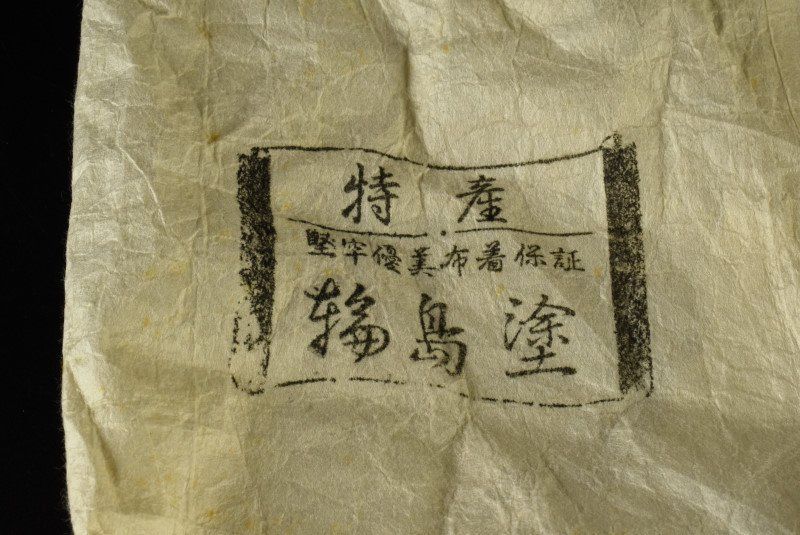 特産
堅牢優美布着保証
輪島塗